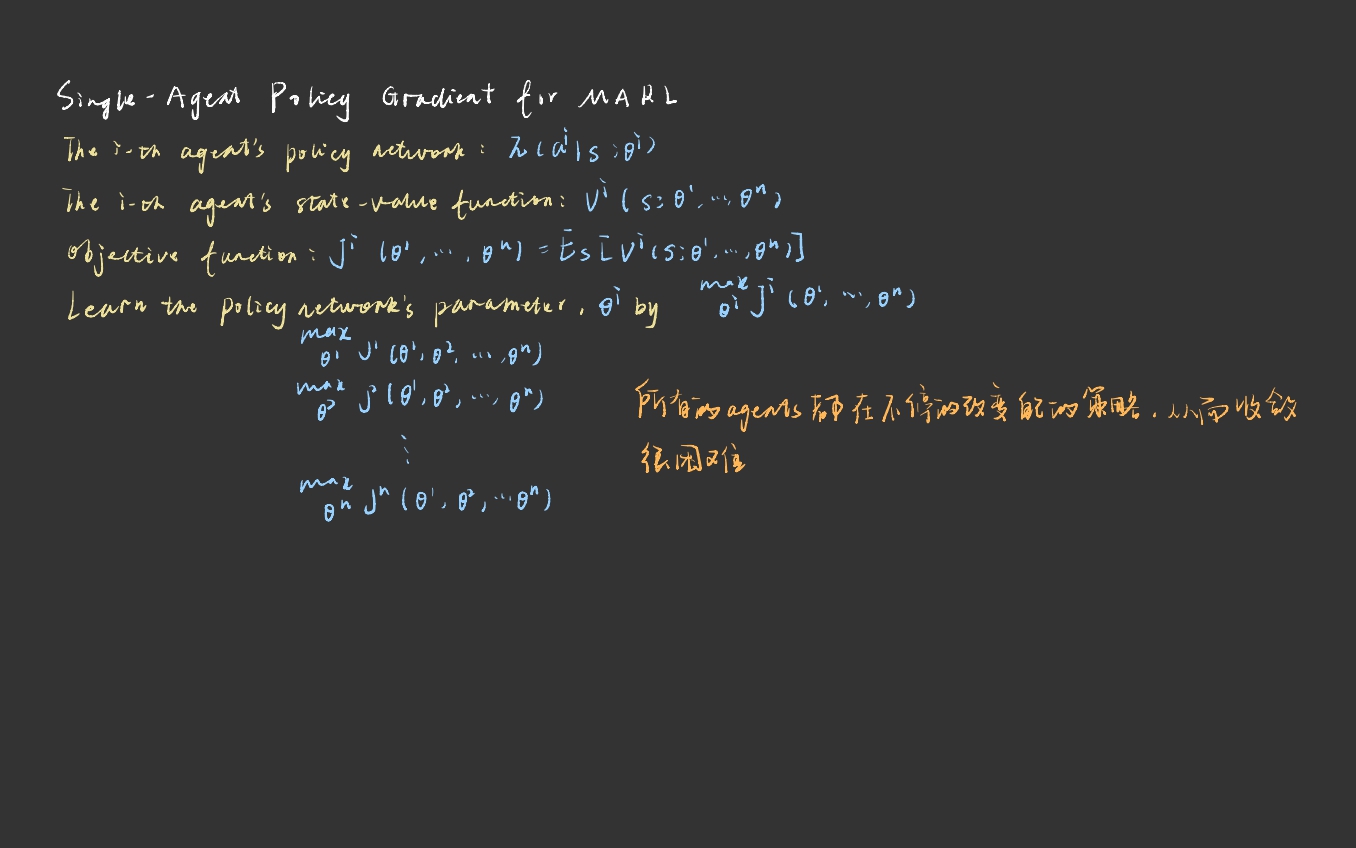 Single-Agent Policy Gradient for MARL
The i-th agent's policy network: π(aⁱ|s;θⁱ)
The i-th agent's state-value function: Vⁱ(s;θ¹,…,θⁿ)
Objective function: Jⁱ(θ¹,…,θⁿ) = Es[Vⁱ(s;θ¹,…,θⁿ)]
Learn the policy network's parameter, θⁱ by max θⁱ Jⁱ(θ¹,…,θⁿ)
max θ¹ J¹(θ¹,θ²,…,θⁿ)
max θ² J²(θ¹,θ²,…,θⁿ)
⋮
max θⁿ Jⁿ(θ¹,θ²,…θⁿ)
所有的agents都在不停的改变自己的策略,从而收敛
很困难